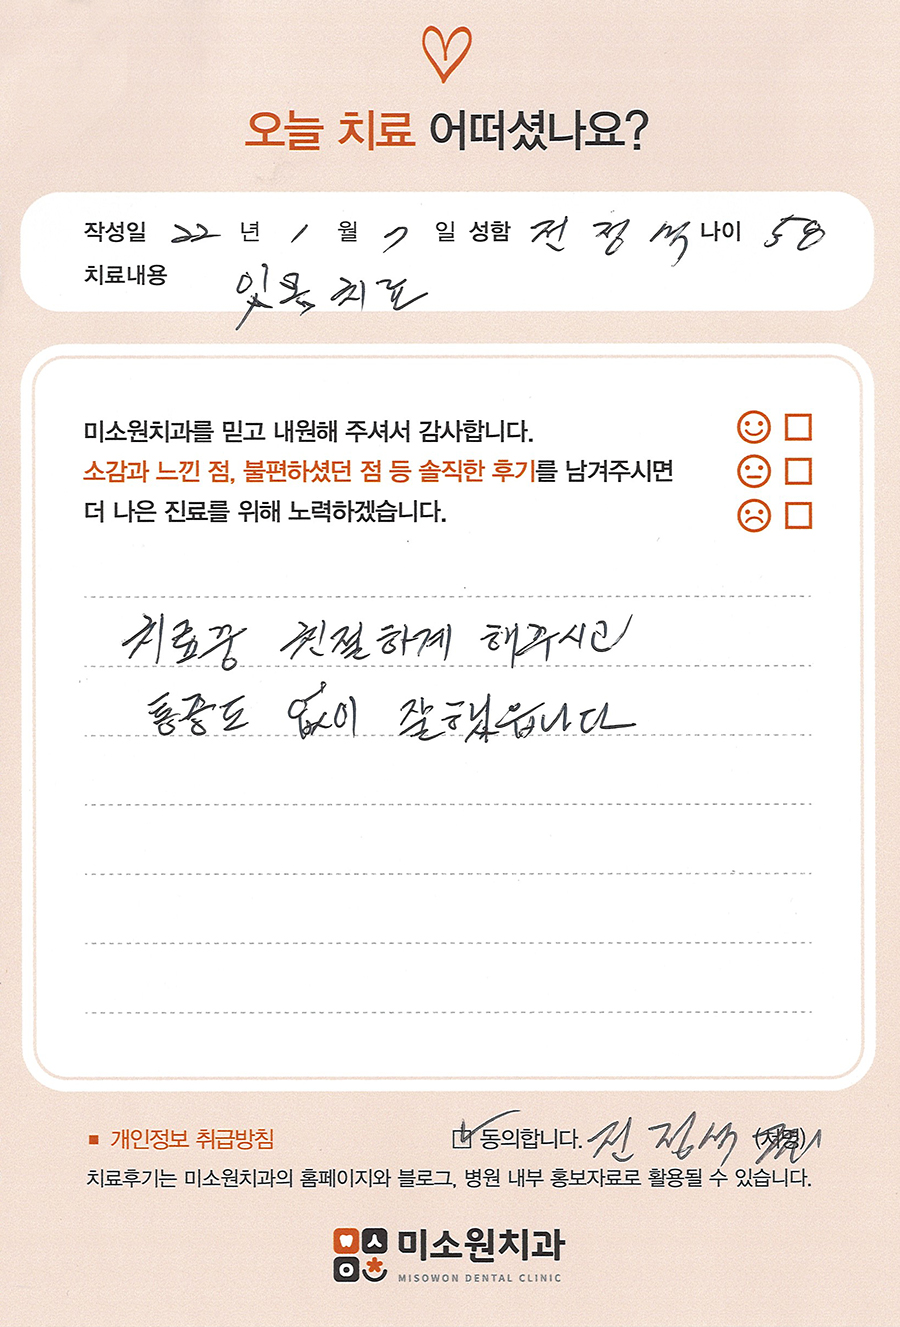 오늘 치료 어떠셨나요?
작성일 22 년 1 월 7 일 성함 전정석 나이 58
치료내용 잇몸치료
미소원치과를 믿고 내원해 주셔서 감사합니다.
소감과 느낀 점, 불편하셨던 점 등 솔직한 후기를 남겨주시면
더 나은 진료를 위해 노력하겠습니다.
치료중 친절하게 해주시고
통증도 없이 잘했습니다
개인정보 취급방침 동의합니다. 전정석 (서명)
치료후기는 미소원치과의 홈페이지와 블로그, 병원 내부 홍보자료로 활용될 수 있습니다.
미소원치과
MISOWON DENTAL CLINIC